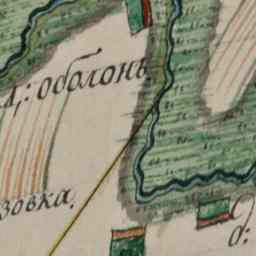 д: оболонь
зовка.
д: